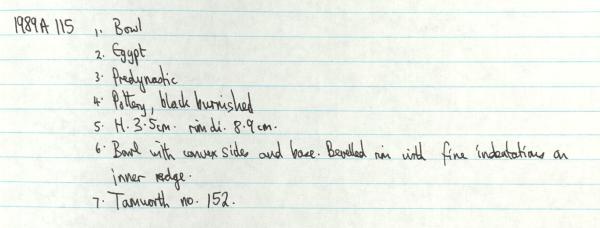 1989A 115 1. Bowl
2. Egypt
3. Predynastic
4. Pottery, black burnished
5. H. 3.5cm. rim di. 8.9cm.
6. Bowl with convex sides and base. Bevelled rim with fine indentations on
inner edge.
7. Tamworth no. 152.